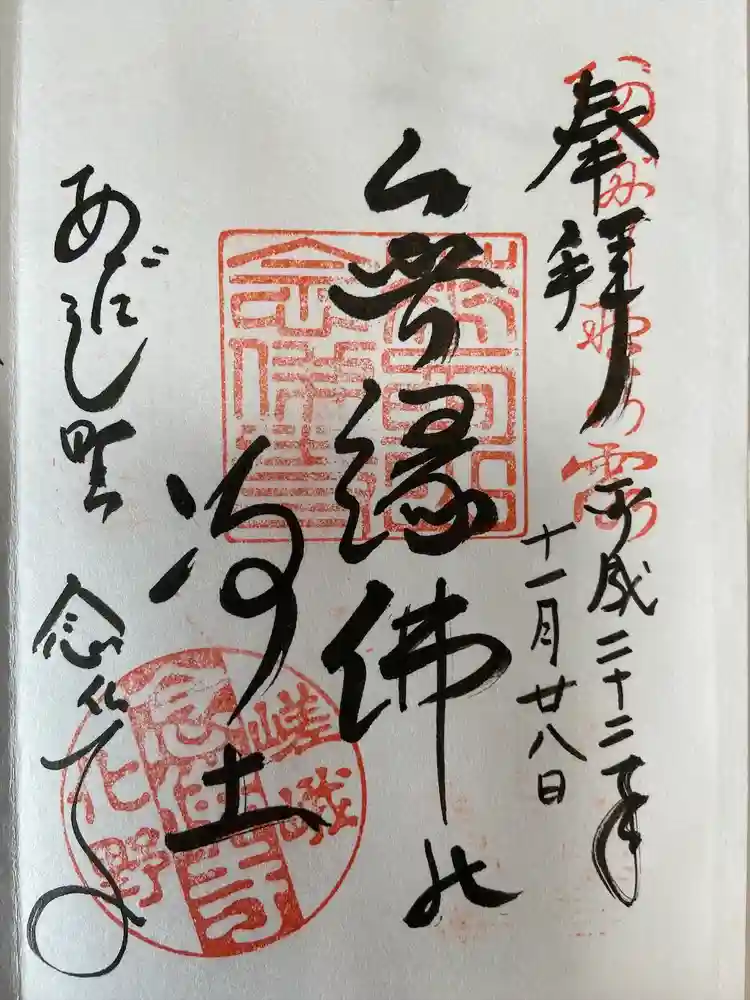 奉拝
平成二十二年
十一月廿八日
無縁佛乃
浄土
あだし野 念仏寺
嵯峨
念佛寺
化野